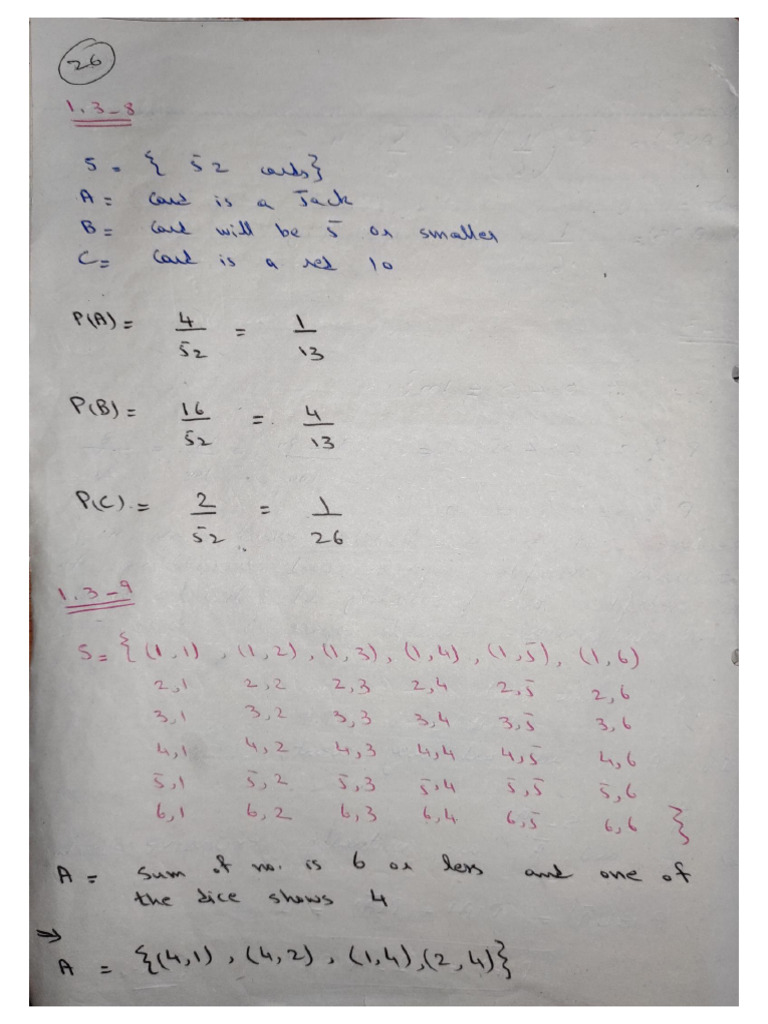 26
1.3-8
S = { 52 cards}
A = Card is a Jack
B = Card will be 5 or smaller
C = Card is a red 10
P(A) = 4/52 = 1/13
P(B) = 16/52 = 4/13
P(C) = 2/52 = 1/26
1.3-9
S = { (1,1) , (1,2) , (1,3) , (1,4) , (1,5) , (1,6)
2,1 2,2 2,3 2,4 2,5 2,6
3,1 3,2 3,3 3,4 3,5 3,6
4,1 4,2 4,3 4,4 4,5 4,6
5,1 5,2 5,3 5,4 5,5 5,6
6,1 6,2 6,3 6,4 6,5 6,6 }
A = Sum of no. is 6 or less and one of
the dice shows 4
⇒
A = {(4,1) , (4,2) , (1,4) , (2,4)}